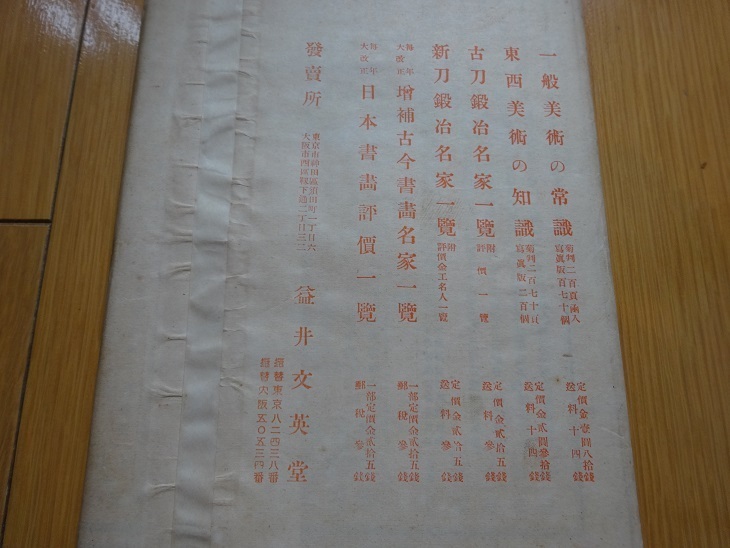 一般美術の常識 菊判二百頁函入 寫眞版百七十個 定價金壹圓八拾錢 送料十四錢
東西美術の知識 菊判二百七十頁 寫眞版二百個 定價金貳圓參拾錢 送料十四錢
古刀鍛冶名家一覽 附評價一覽 定價金貳拾五錢 送料參錢
新刀鍛冶名家一覽 附評價金工名人一覽 定價金貳拾五錢 送料參錢
毎年大改正 增補古今書畵名家一覽 一部定價金貳拾五錢 郵稅參錢
毎年大改正 日本書畵評價一覽 一部定價金貳拾五錢 郵稅參錢
發賣所 東京市神田區須田町一丁目六 大阪市西區 下通二丁目三二 益井文英堂 振替東京八二四三八番 振替大阪五〇五三四番